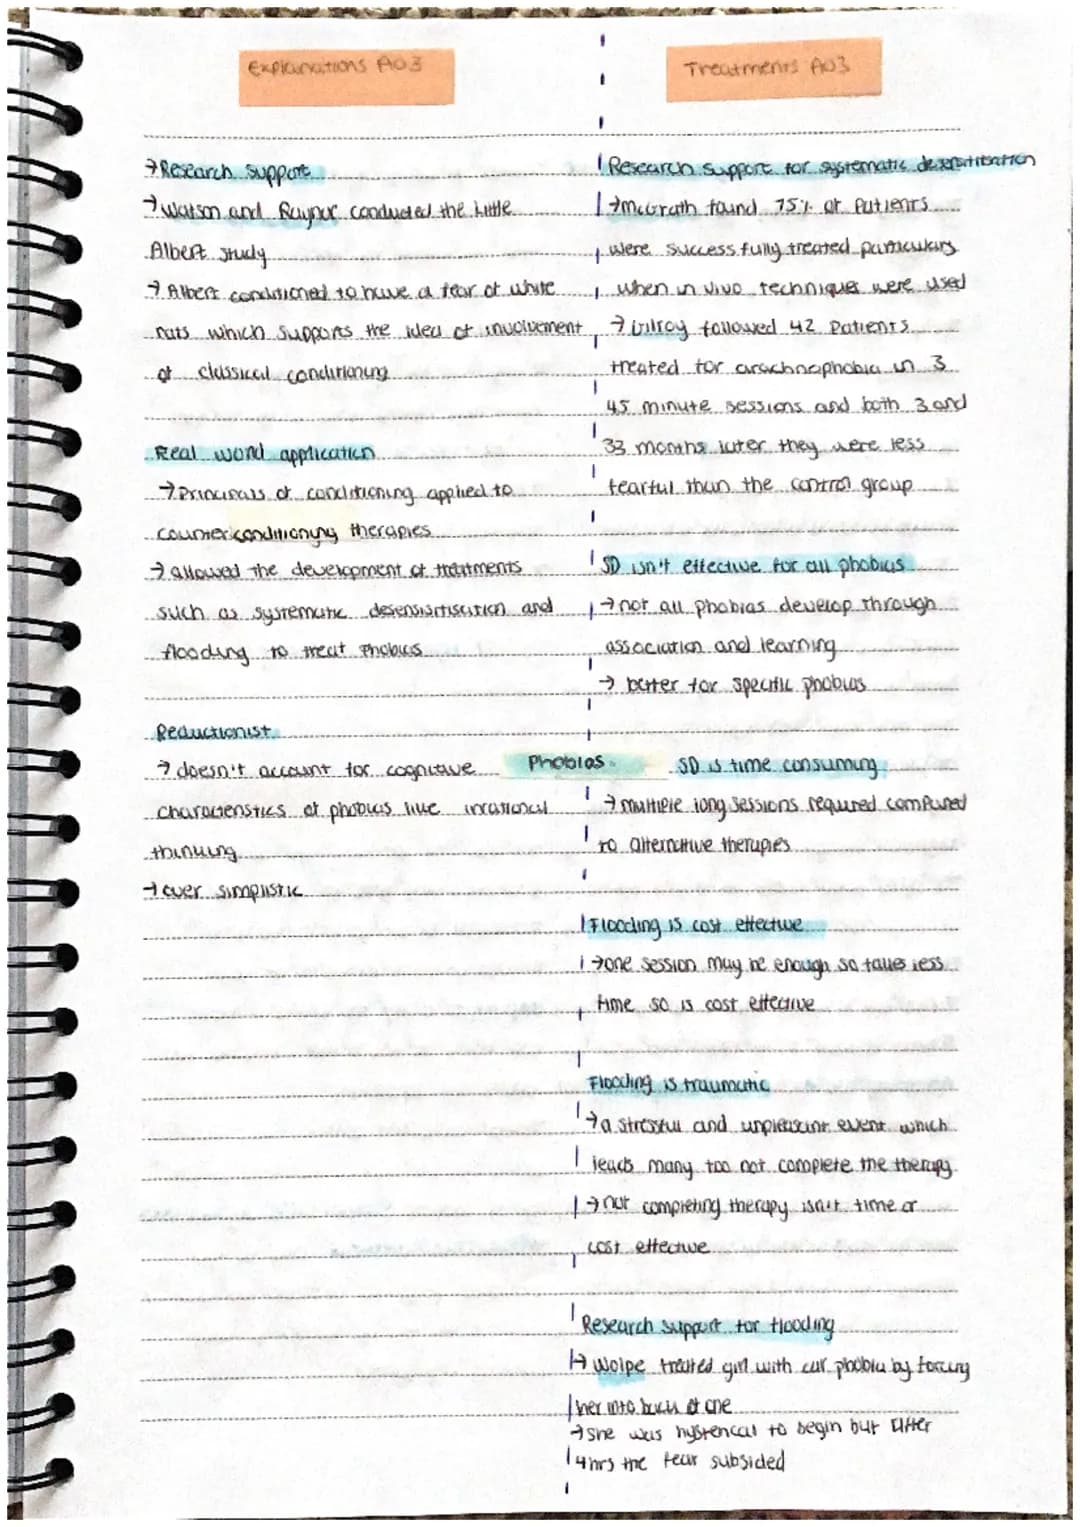 Explanations A03
→ Research support
→ Watson and Raynor conducted the Little
Albert study
→ Albert conditioned to have a fear of white
rats which supports the idea of involvement
of classical conditioning
Real word application
→ Principals of conditioning applied to
counterconditioning therapies
→ allowed the development of treatments
such as systematic desensistisation and
flooding to treat phobias
Reductionist
→ doesn't account for cognitive
characteristics of phobias like irrational
thinking
→ over simplistic
Phobias
Treatments A03
Research support for systematic desensitisation
→ McGrath found 75% of patients
were successfully treated particulary
when in vivo techniques were used
→ Gilroy followed 42 patients
treated for arachnophobia in 3
45 minute sessions and both 3 and
33 months later they were less
fearful than the control group
SD isn't effective for all phobias
→ not all phobias develop through
association and learning
→ better for specific phobias
SD is time consuming
→ multiple long sessions required compared
to alternative therapies
Flooding is cost effective
→ one session may be enough so takes less
time so is cost effective
Flooding is traumatic
→ a stressful and unpleasant event which
leads many too not complete the therapy
→ not completing therapy isn't time or
cost effective
Research support for flooding
→ Wolpe treated girl with car phobia by forcing
her into back of one
→ she was hysterical to begin but after
4hrs the fear subsided